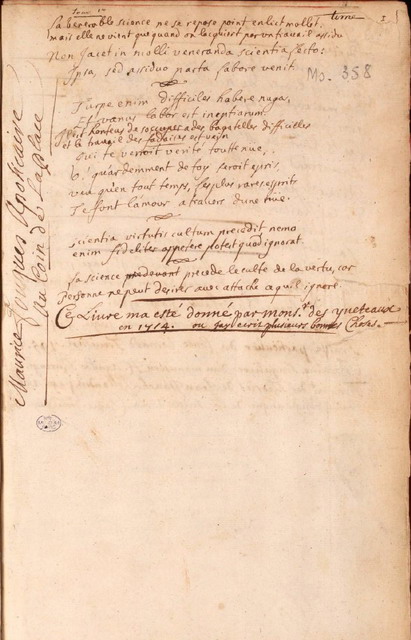 tome 1er
turne 1
La venerable science ne se repose point en lict mollet,
mais elle ne vient que quand on lacquirt par un travail assidu
Non jacet in molli veneranda scientia lecto:
Ipsa, sed assiduo parta labore venit.
Ms. 358
Turpe enim difficiles habere nugas,
Et vanus labor est ineptiarum.
Il est honteux de soccuper a des bagatelles difficiles
et le travail des fadaises est vain
Qui te verroit verité toute nue,
O! quardemment de toy seroit epris,
veu qu'en tout temps, les plus rares esprits
Te font lamour a travers dune nue.
scientia virtutis cultum precedit nemo
enim fideliter appetere potest quod ignorat
La science precede le culte de la vertu, car
Personne ne peut desirer avec attache ce quil ignore.
Ce Livre ma esté donné par monsr. des yveteaux
en 1714. ou jay ecrit plusieurs bonnes Choses.
Maurice Jouques Apoticaire
Au Coin de La place